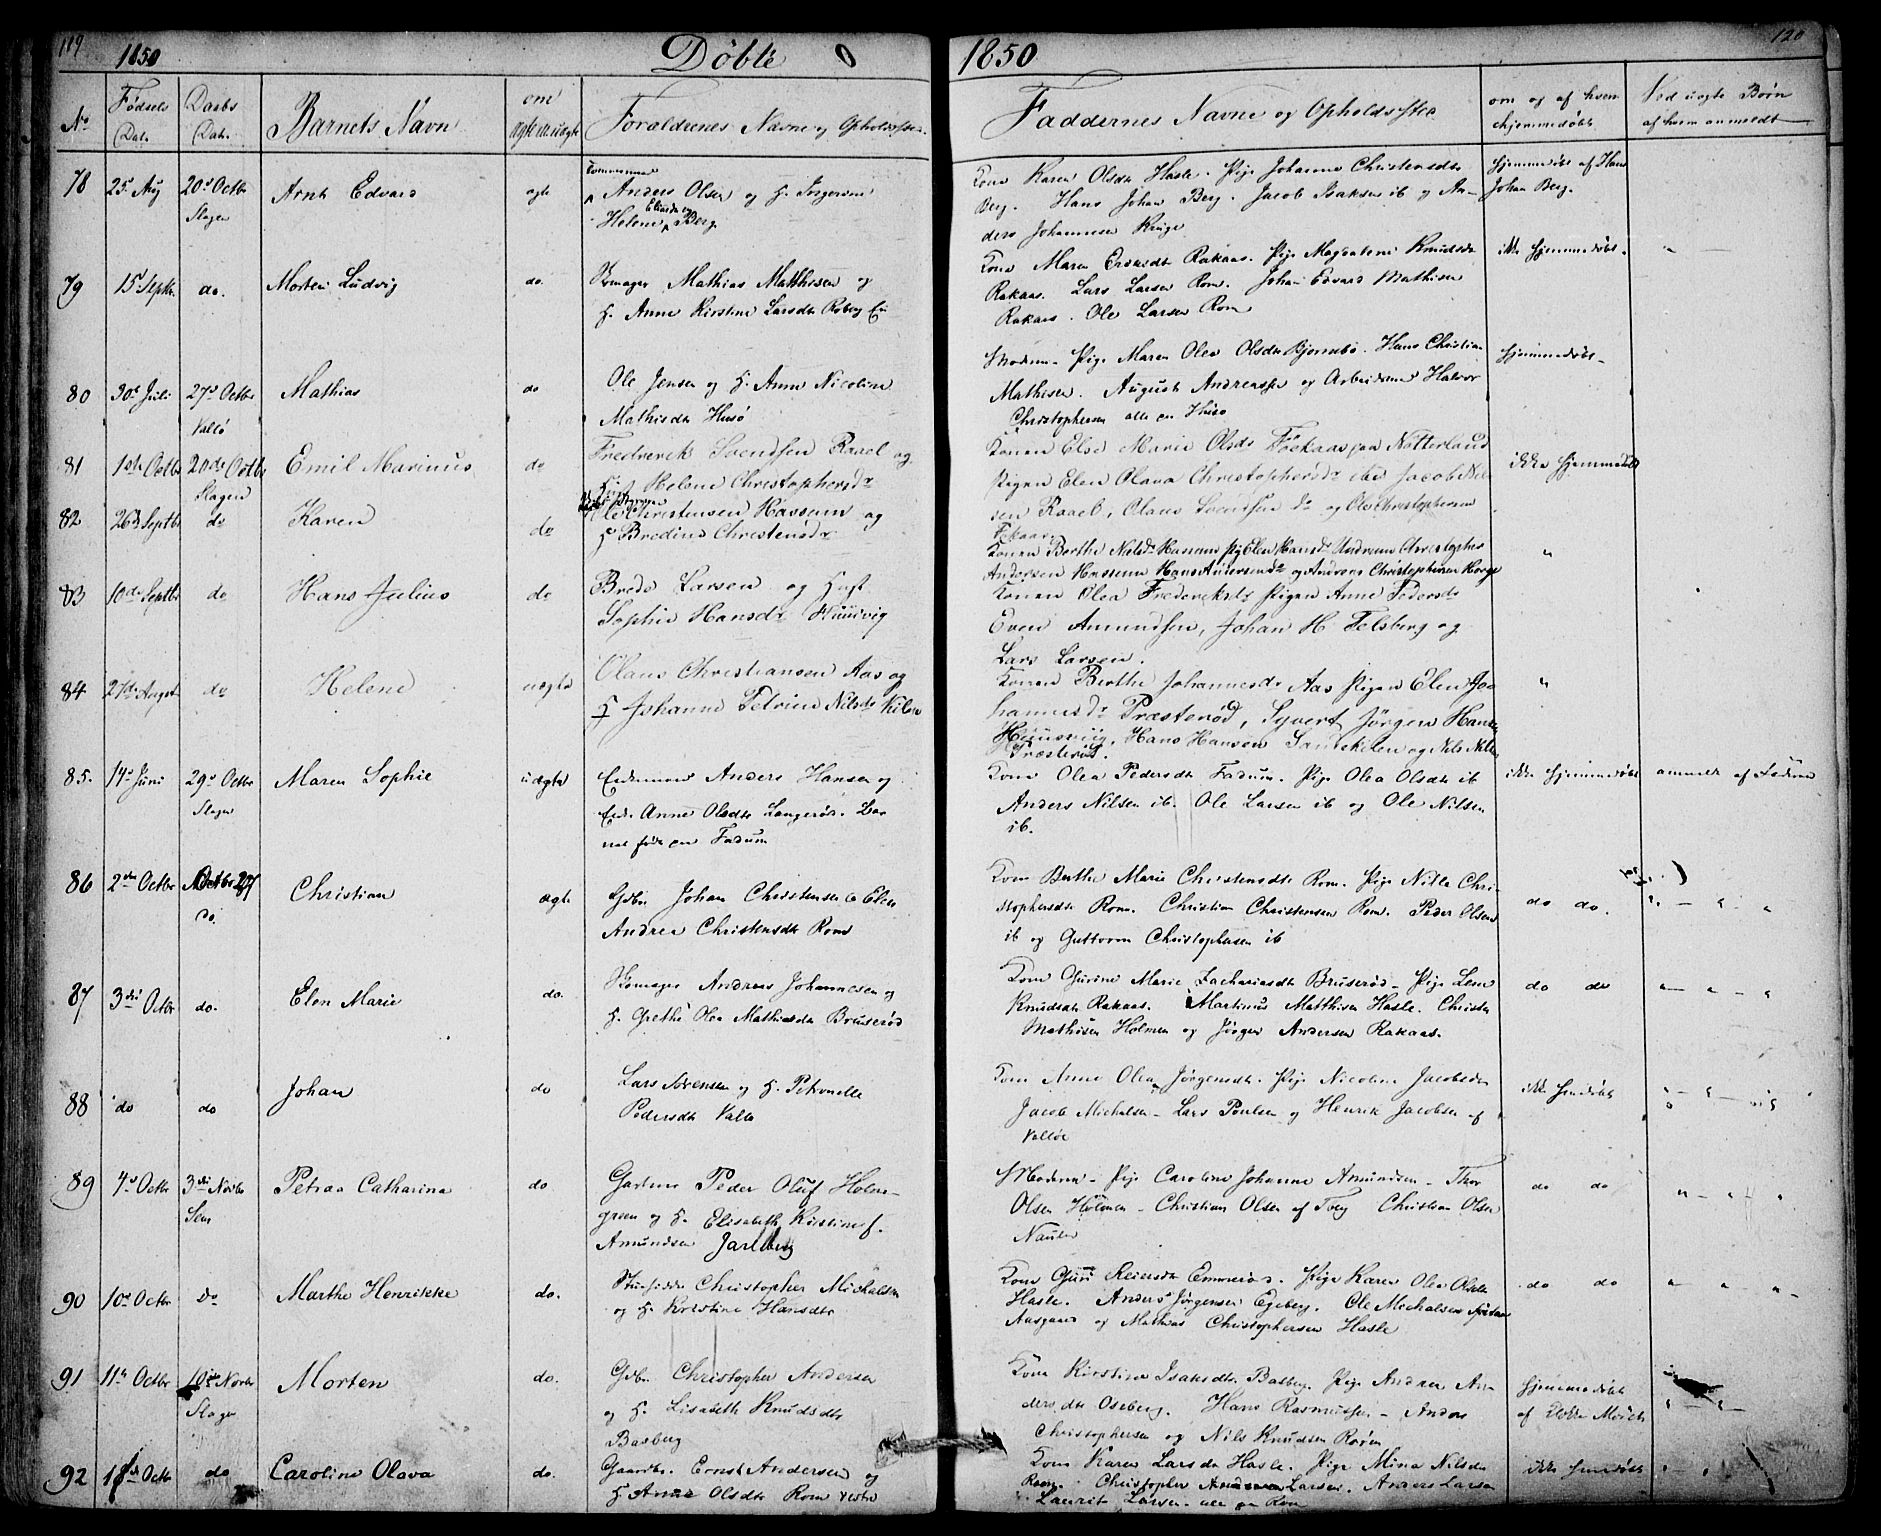 119 1850 Döbte 1850 120
No Fødsels Dat. Daabs Dat. Barnets Navn om ægte el. uægte Forældrenes Navne og Opholdssted Faddernes Navne og Opholdssted om og af hvem hjemmedøbt Ved uægte Børn af hvem anmeldt
78 25 Aug 20d Octbr Slagen Arnt Edvard ægte
Anders Olsen og H. Ingersine
Helene Elinda og Berg
Kone Karen Olsdtr Hasle. Pige Johanne Christensdtr
Berg. Hans Johan Berg. Jacob Isaksen ib og An-
ders Johannesen Kruge
Hjemmedøbt af Hans
Johan Berg.
79 15d Septbr. do. Morten Ludvig do.
Skomager Mathias Matthisen og
H. Anne Kirstine Larsdtr Roberg
Kone Maren Eriksdtr Rakaas. Pige Magdalene Knudsdtr
Rakaas. Lars Larsen Rom. Johan Edvard Mathisen
Rakaas. Ole Larsen Rom
ikke hjemmedøbt.
80 30d Juli 27d Octbr Vallö Mathias do
Ole Jensen og H. Anne Nicoline
Mathisdtr Husö
Moderen - Pige Maren Olea Olsdtr Bjornebo. Hans Christian
Mathisen. August Andreassen og Arbeidsm. Halvor
Christophersen alle paa Husø
hjemmedøbt -
81 1ste Octbr 20de Octbr Slagen Emil Marinus do
Fredrerik Svendsen Raael og
H. Helene Christophersdr
Konen Else Marie Olsdr Fökaas paa Nötterland
Pigen Elen Olava Christophersdr ibid Jacob Niel-
sen Raael, Olaus Svendsen do og Ole Christophersen
Fökaas
ikke hjemmedøbt
82 26d Septbr do Karen do
Ole Christensen Hassum og
H Bredine Christensdr
Konen Berthe Nielsdr Hassum Pig Elen Hansdr Andreas Christopher
Andersen Hassum Hans Andersen do og Andreas Christophersen Korge
"
83 10de Septbr do Hans Julius do
Brede Larsen og Hust
Sophie Hansdr Huusvig
Konen Olea Frederiksdr Pigen Anne Pedersdr
Even Amundsen, Johan H. Felsberg og
Lars Larsen.
84 27de August do Helene uægte
Olaus Christiansen Aas og
H Johanne Petrine Nilsdr Kilen
Konen Berthe Johannesdr Aas Pigen Elen Jo-
hannesdr Præsterød, Syvert Jörgen Hansen
Huusvig, Hans Hansen Sandekilen og Nils Nilsen
Præsterød.
"
85. 14d Juni 29d Octbr Slagen Maren Sophie uægte
Enkemand Anders Hansen og
Enke Anne Olsdtr Langerød. Bar-
net født paa Fadum
Kone Olea Pedersdtr Fadum. Pige Olea Olsdtr ib
Anders Nilsen ib. Ole Larsen ib og Ole Nilsen
ib.
ikke hjemmedøbt anmeldt af Faderen
86 2den Octbr Octbr 27 do. Christian ægte
Gdbr. Johan Christensen & Elen
Andrea Christensdtr Rom
Kone Berthe Marie Christensdtr Rom. Pige Nille Chri-
stophersdtr Rom. Christian Christensen Rom. Peder Olsen
ib og Guttorm Christophersen ib
do do. " - " - "
87 3die Octbr do. Elen Marie do.
Skomager Andreas Johannesen og
H. Grethe Olea Mathiasdtr Bruserød
Kone Gurine Marie Zachariasdtr Bruserød - Pige Lene
Knudsdtr Rakaas. Martinus Matthisen Hasle. Christen
Mathisen Holmen og Jörgen Andersen Rakaas.
do do " - " - "
88 do do Johan do
Lars Sørensen og H. Petronelle
Pedersdtr Vallø
Kone Anne Olea Jørgensdtr. Pige Nicoline Jacobsdtr
Jacob Michalsen - Lars Poulsen og Henrik Jacobsen af
Valløe
ikke hjemdøbt
89 4de Octbr 3die Novbr Sem Petraa Catharina do
Gartner Peder Oluf Holm-
green og H. Elisabeth Kirstine f.
Amundsen Jarlsberg
Moderen - Pige Caroline Johanne Amundsen - Thor
Olsen Holmen - Christian Olsen af Tbrg Christian Olsen
Nauen
do do " - " "
90 10d Octbr Do Marthe Henrikke do.
Huusidder Christopher Michalsen
og H. Kirstine Hansdtr
Kone Guri Reiersdtr Emmerød. Pige Karen Olea Olsdtr
Hasle. Anders Jørgensen Egeberg. Ole Michalsen
Aasgaard og Mathias Christophersen Hasle
do do " " "
91 11te Octbr 10de Novbr Slagen Morten do.
Gdbr. Christopher Andersen
og H. Lisabeth Knudsdtr
Basberg
Kone Kirstine Isaksdtr Basberg. Pige Andrea An-
dersdtr Oseberg. Hans Rasmussen - Anders
Christophersen og Nils Knudsen Røren
hjemmedøbt
92 18de Octbr do Caroline Olava do.
Gaardbr. Ernst Andersen og
H. Anne Olsdtr Rom vestre
Kone Karen Larsdtr Hasle. Pige Mina Nilsdtr
Rom. Christopher Larsen. Anders Larsen
Laurits Larsen. alle paa Rom
ikke hjemdøbt